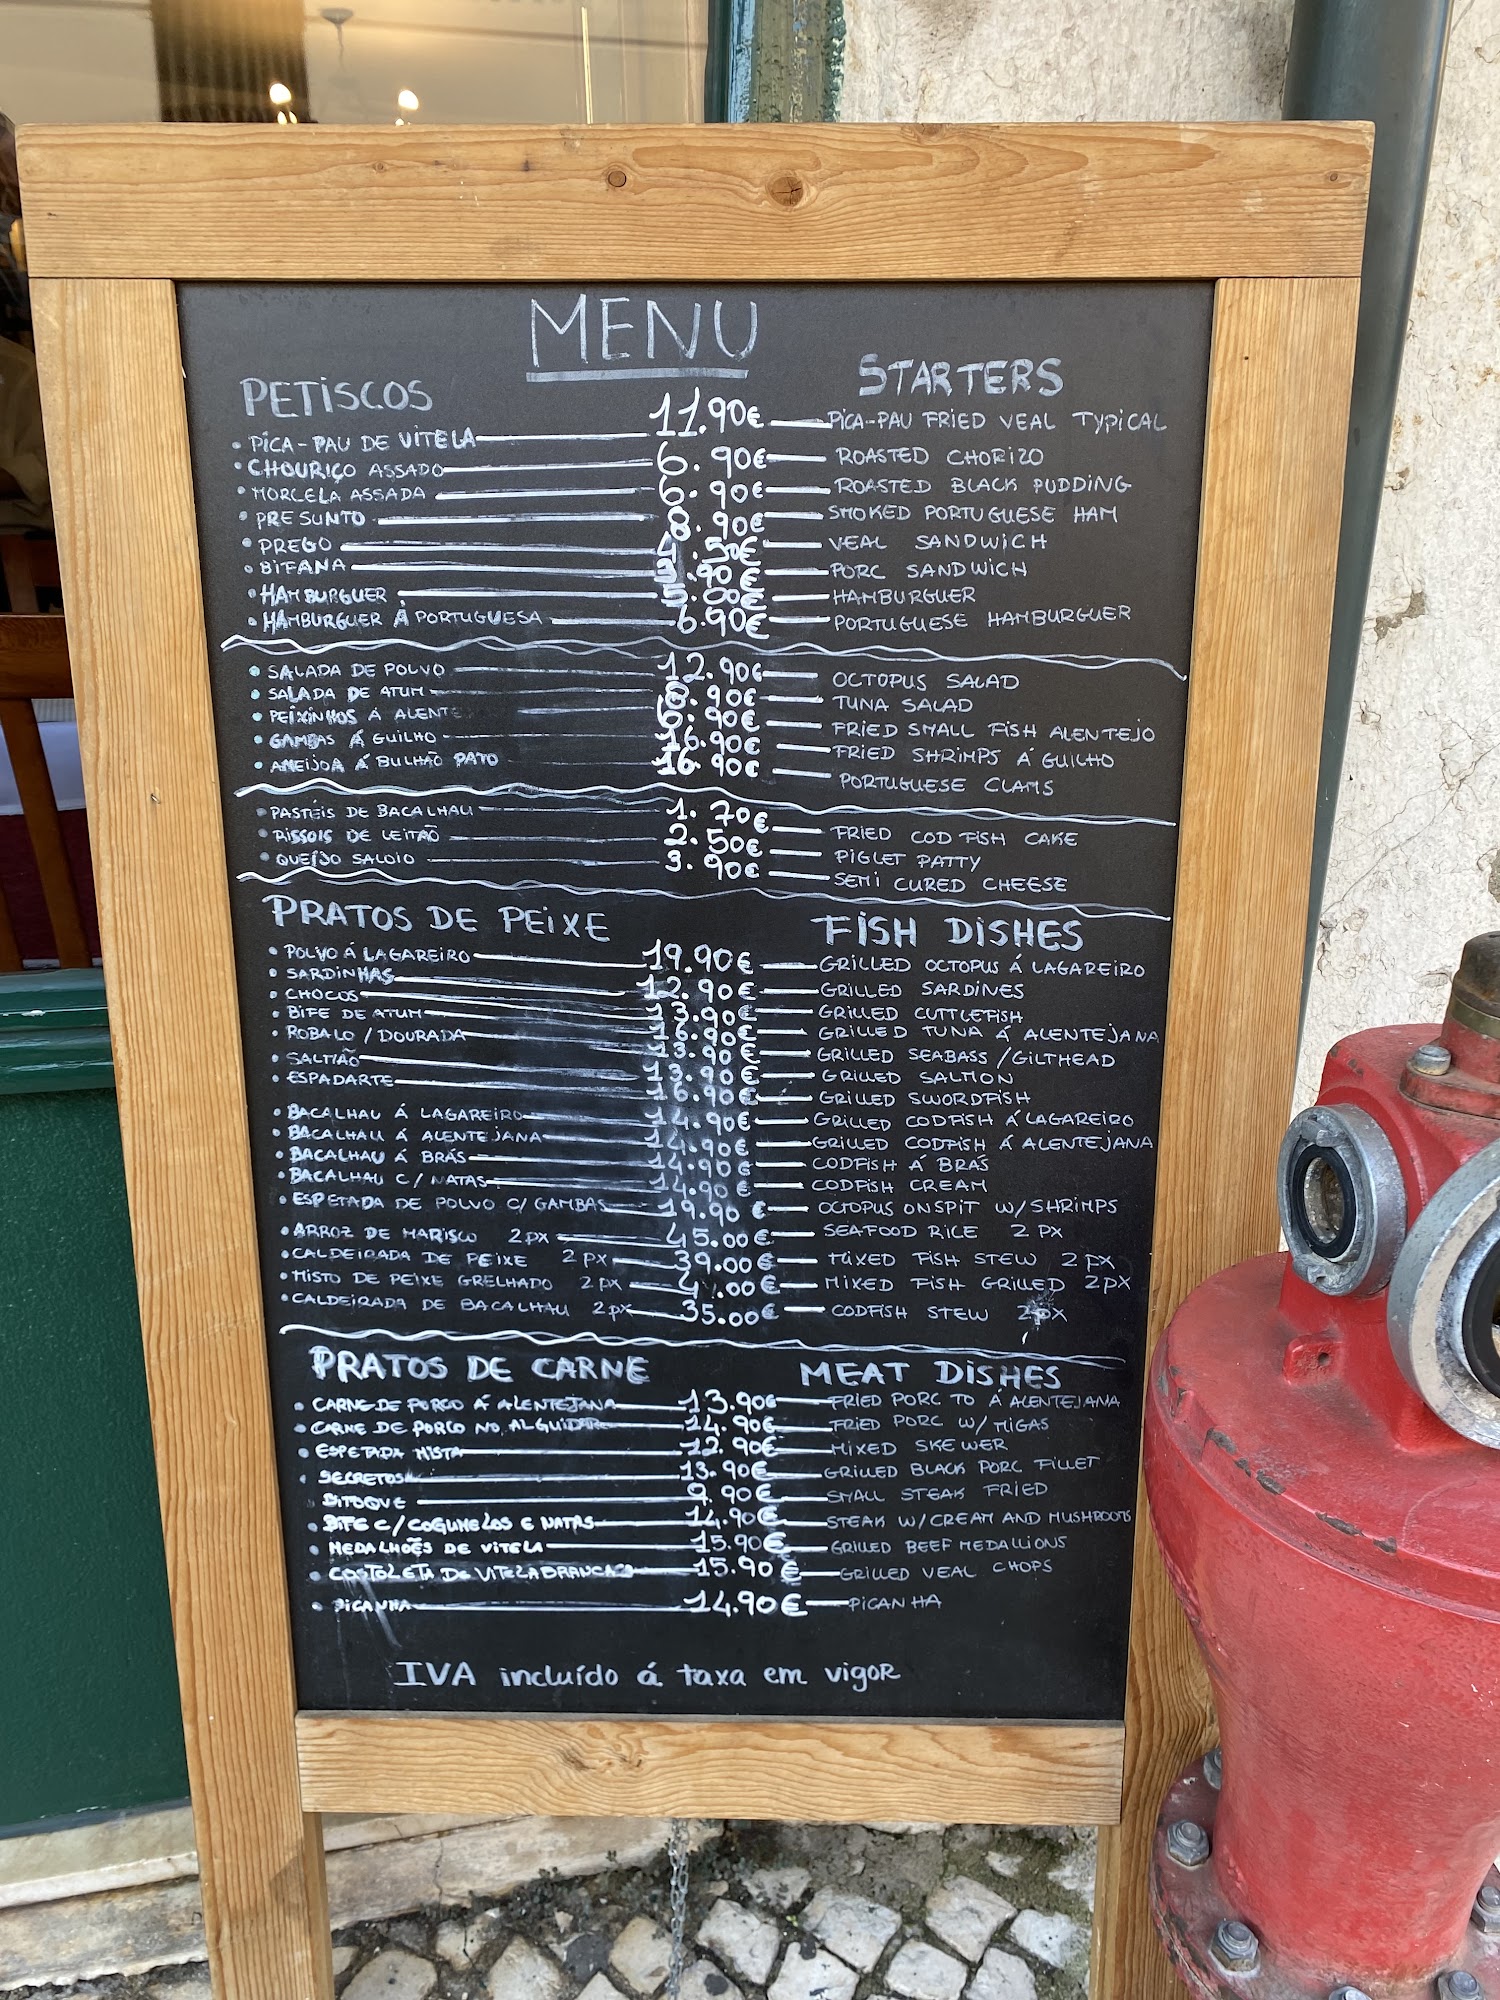 MENU
PETISCOS STARTERS
• PICA-PAU DE VITELA 11.90€ PICA-PAU FRIED VEAL TYPICAL
• CHOURIÇO ASSADO 6.90€ ROASTED CHORIZO
• MORCELA ASSADA 6.90€ ROASTED BLACK PUDDING
• PRESUNTO 8.90€ SMOKED PORTUGUESE HAM
• PREGO .50€ VEAL SANDWICH
• BIFANA .90€ PORC SANDWICH
• HAMBURGUER 5.00€ HAMBURGUER
• HAMBURGUER Á PORTUGUESA 6.90€ PORTUGUESE HAMBURGUER
• SALADA DE POLVO 12.90€ OCTOPUS SALAD
• SALADA DE ATUM .90€ TUNA SALAD
• PEIXINHOS Á ALENTE 6.90€ FRIED SMALL FISH ALENTEJO
• GAMBAS Á GUILHO 16.90€ FRIED SHRIMPS Á GUILHO
• AMEIJOA Á BULHÃO PATO 16.90€ PORTUGUESE CLAMS
• PASTÉIS DE BACALHAU 1.70€ FRIED COD FISH CAKE
• RISSOIS DE LEITÃO 2.50€ PIGLET PATTY
• QUEIJO SALOIO 3.90€ SEMI CURED CHEESE
PRATOS DE PEIXE FISH DISHES
• POLVO Á LAGAREIRO 19.90€ GRILLED OCTOPUS Á LAGAREIRO
• SARDINHAS 12.90€ GRILLED SARDINES
• CHOCOS 13.90€ GRILLED CUTTLEFISH
• BIFE DE ATUM 16.90€ GRILLED TUNA Á ALENTEJANA
• ROBALO / DOURADA 13.90€ GRILLED SEABASS /GILTHEAD
• SALMÃO 13.90€ GRILLED SALMON
• ESPADARTE 16.90€ GRILLED SWORDFISH
• BACALHAU Á LAGAREIRO 14.90€ GRILLED CODFISH Á LAGAREIRO
• BACALHAU Á ALENTEJANA 14.90€ GRILLED CODFISH Á ALENTEJANA
• BACALHAU Á BRÁS 14.90€ CODFISH Á BRÁS
• BACALHAU C/ NATAS 14.90€ CODFISH CREAM
• ESPETADA DE POLVO C/ GAMBAS 19.90€ OCTOPUS ONSPIT W/SHRIMPS
• ARROZ DE MARISCO 2PX 45.00€ SEAFOOD RICE 2 PX
• CALDEIRADA DE PEIXE 2 PX 39.00€ MIXED FISH STEW 2 PX
• MISTO DE PEIXE GRELHADO 2PX .00€ MIXED FISH GRILLED 2PX
• CALDEIRADA DE BACALHAU 2PX 35.00€ CODFISH STEW 2PX
PRATOS DE CARNE MEAT DISHES
• CARNE DE PORCO Á ALENTEJANA 13.90€ FRIED PORC TO Á ALENTEJANA
• CARNE DE PORCO NO ALGUIDAR 14.90€ FRIED PORC W/ MIGAS
• ESPETADA MISTA 12.90€ MIXED SKEWER
• SECRETOS 13.90€ GRILLED BLACK PORC FILLET
BITOQUE 9.90€ SMALL STEAK FRIED
• BIFE C/COGUMELOS E NATAS 14.90€ STEAK W/CREAM AND MUSHROOMS
• MEDALHOĒS DE VITELA 15.90€ GRILLED BEEF MEDALLIONS
• COSTOLETA DE VITELA BRANCA 15.90€ GRILLED VEAL CHOPS
• PICANHA 14.90€ PICANHA
IVA incluído á taxa em vigoR